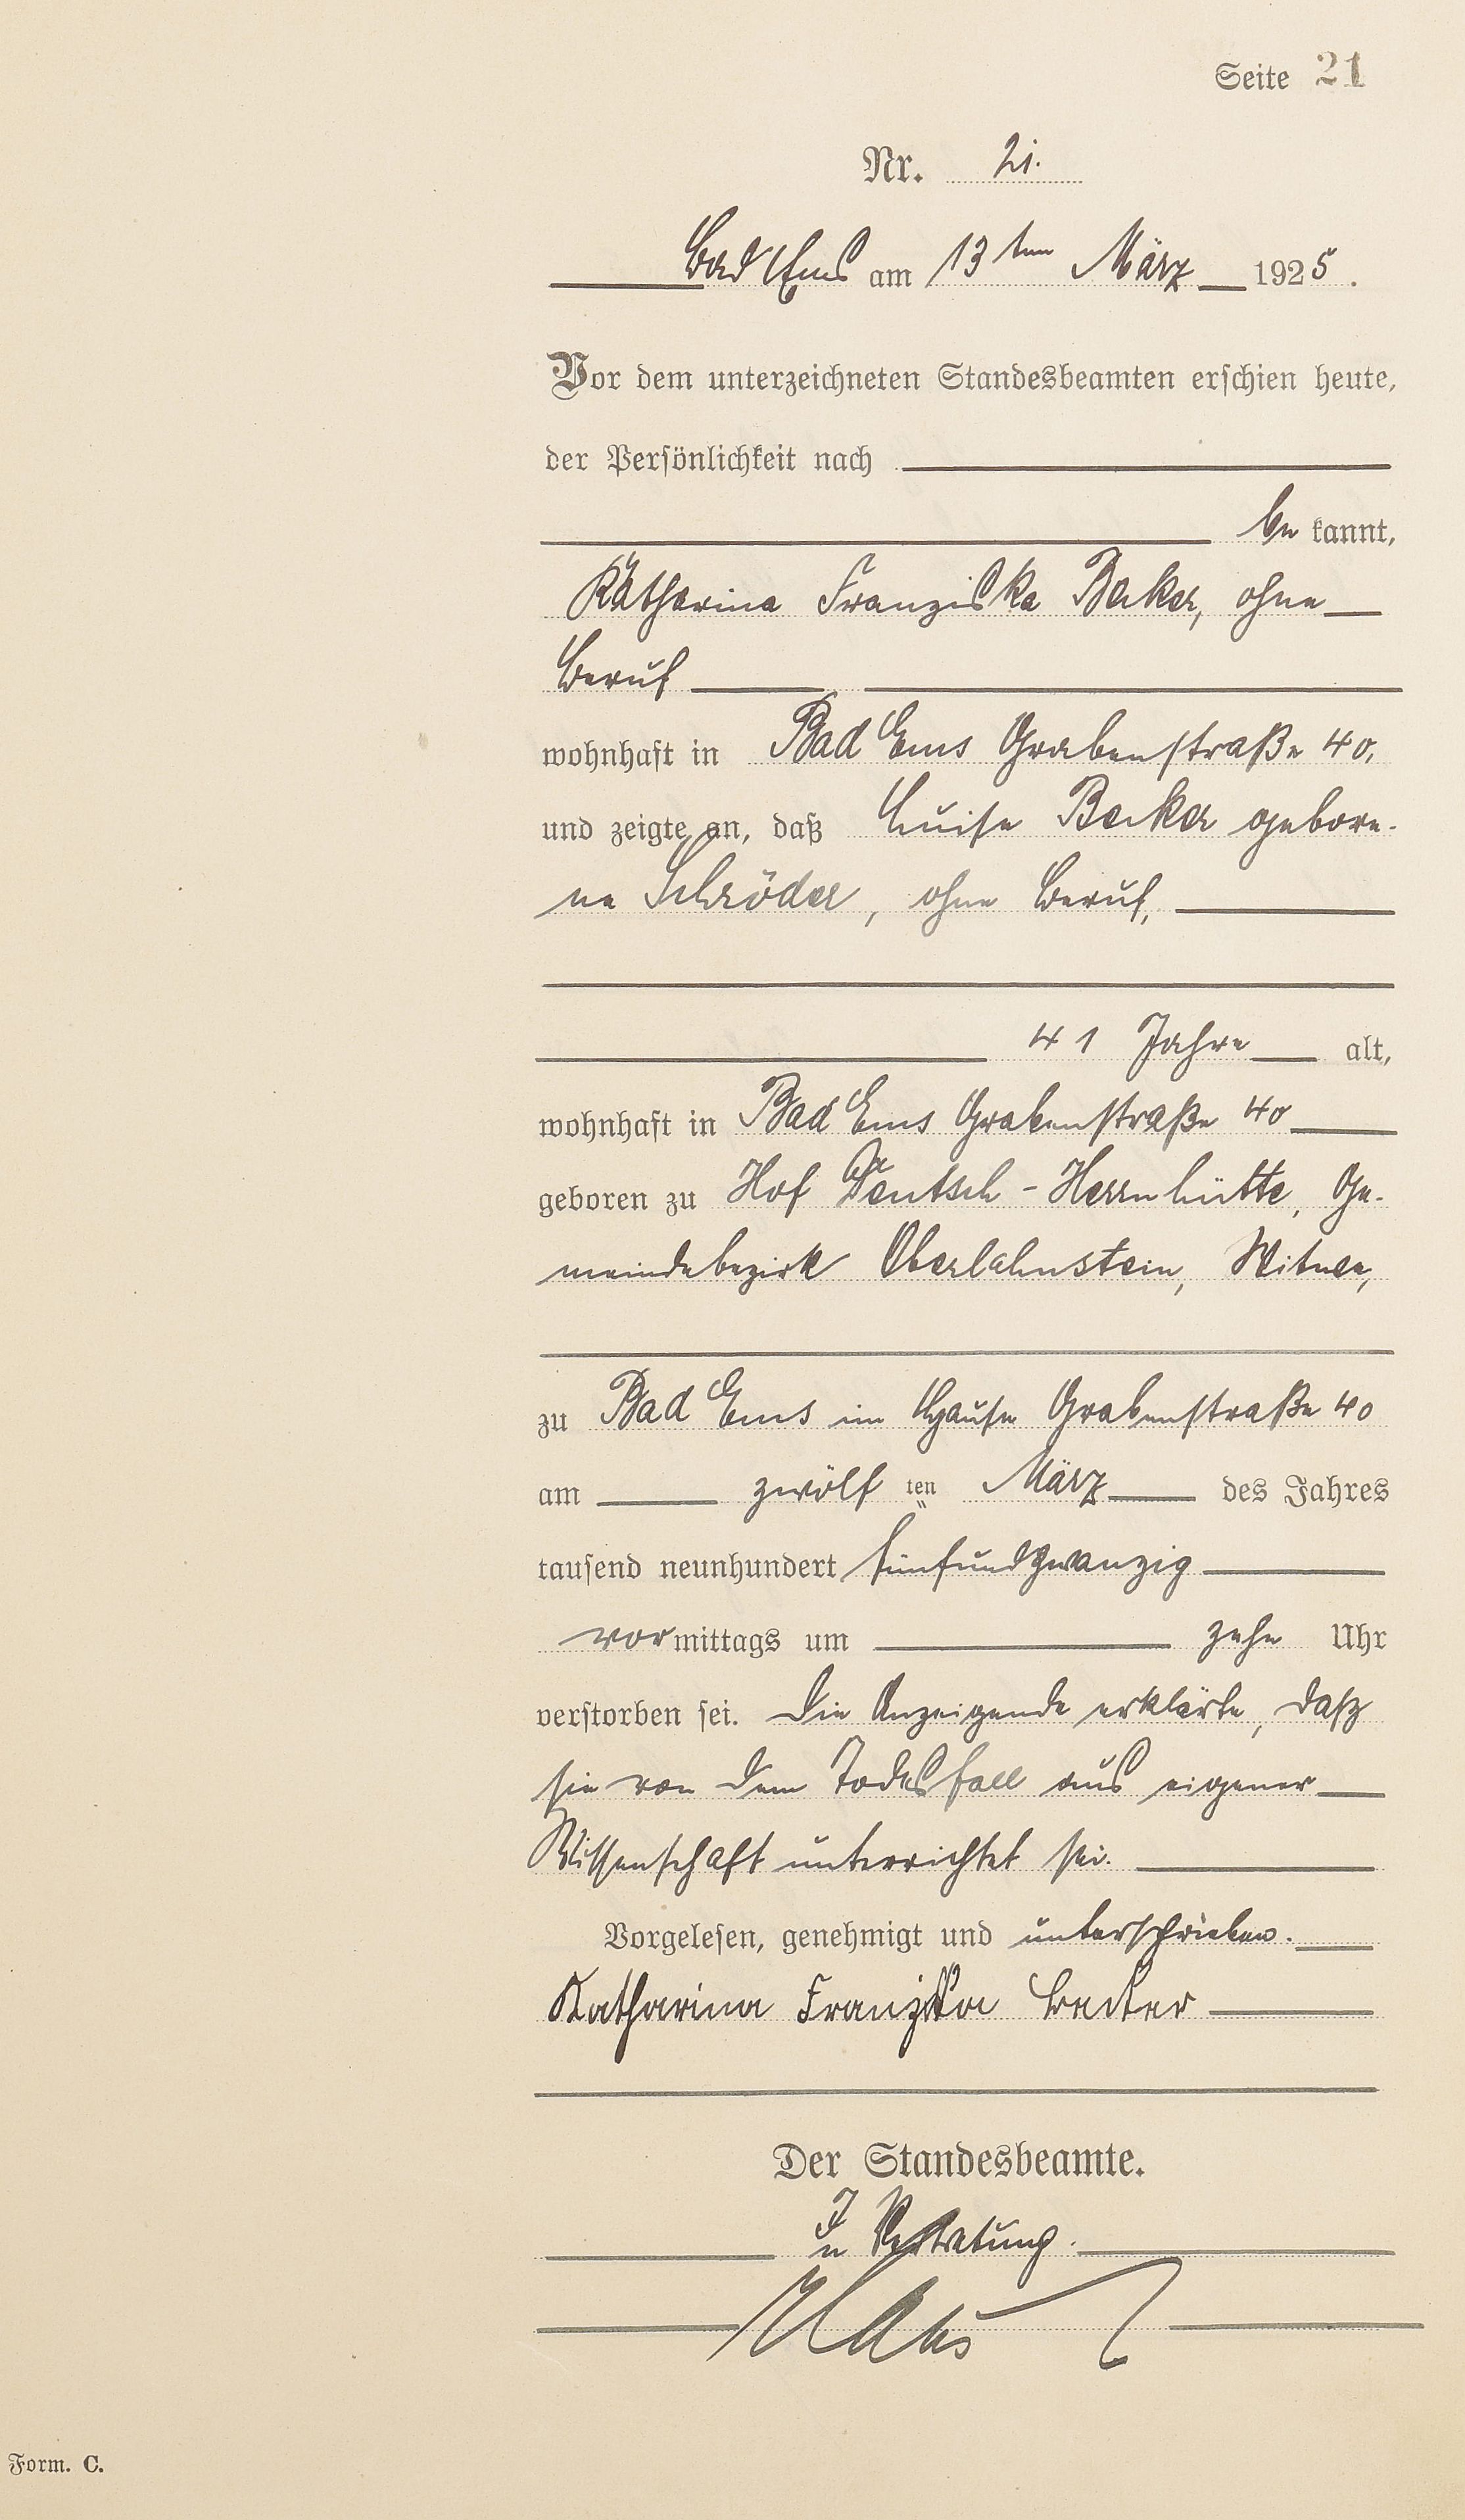 Seite 21
Nr. 21.
Bad Ems am 13ten März 1925.
Vor dem unterzeichneten Standesbeamten erschien heute,
der Persönlichkeit nach
be kannt,
Katharina Franziska Becker, ohne
Beruf
wohnhaft in Bad Ems Grabenstraße 40,
und zeigte an, daß Luise Becker gebore-
ne Schröder, ohne Beruf,
41 Jahre alt,
wohnhaft in Bad Ems Grabenstraße 40
geboren zu Hof Deutsch-Herrnhütte, Ge-
meindebezirk Oberlahnstein, Witwe,
zu Bad Ems im Hause Grabenstraße 40
am zwölf ten März des Jahres
tausend neunhundert fünfundzwanzig
vormittags um zehn Uhr
verstorben sei. Die Anzeigende erklärte, daß
sie von dem Todesfall aus eigener
Wissenschaft unterrichtet sei.
Vorgelesen, genehmigt und unterschrieben.
Katharina Franziska Becker
Der Standesbeamte.
In Vertretung.
Form. C.